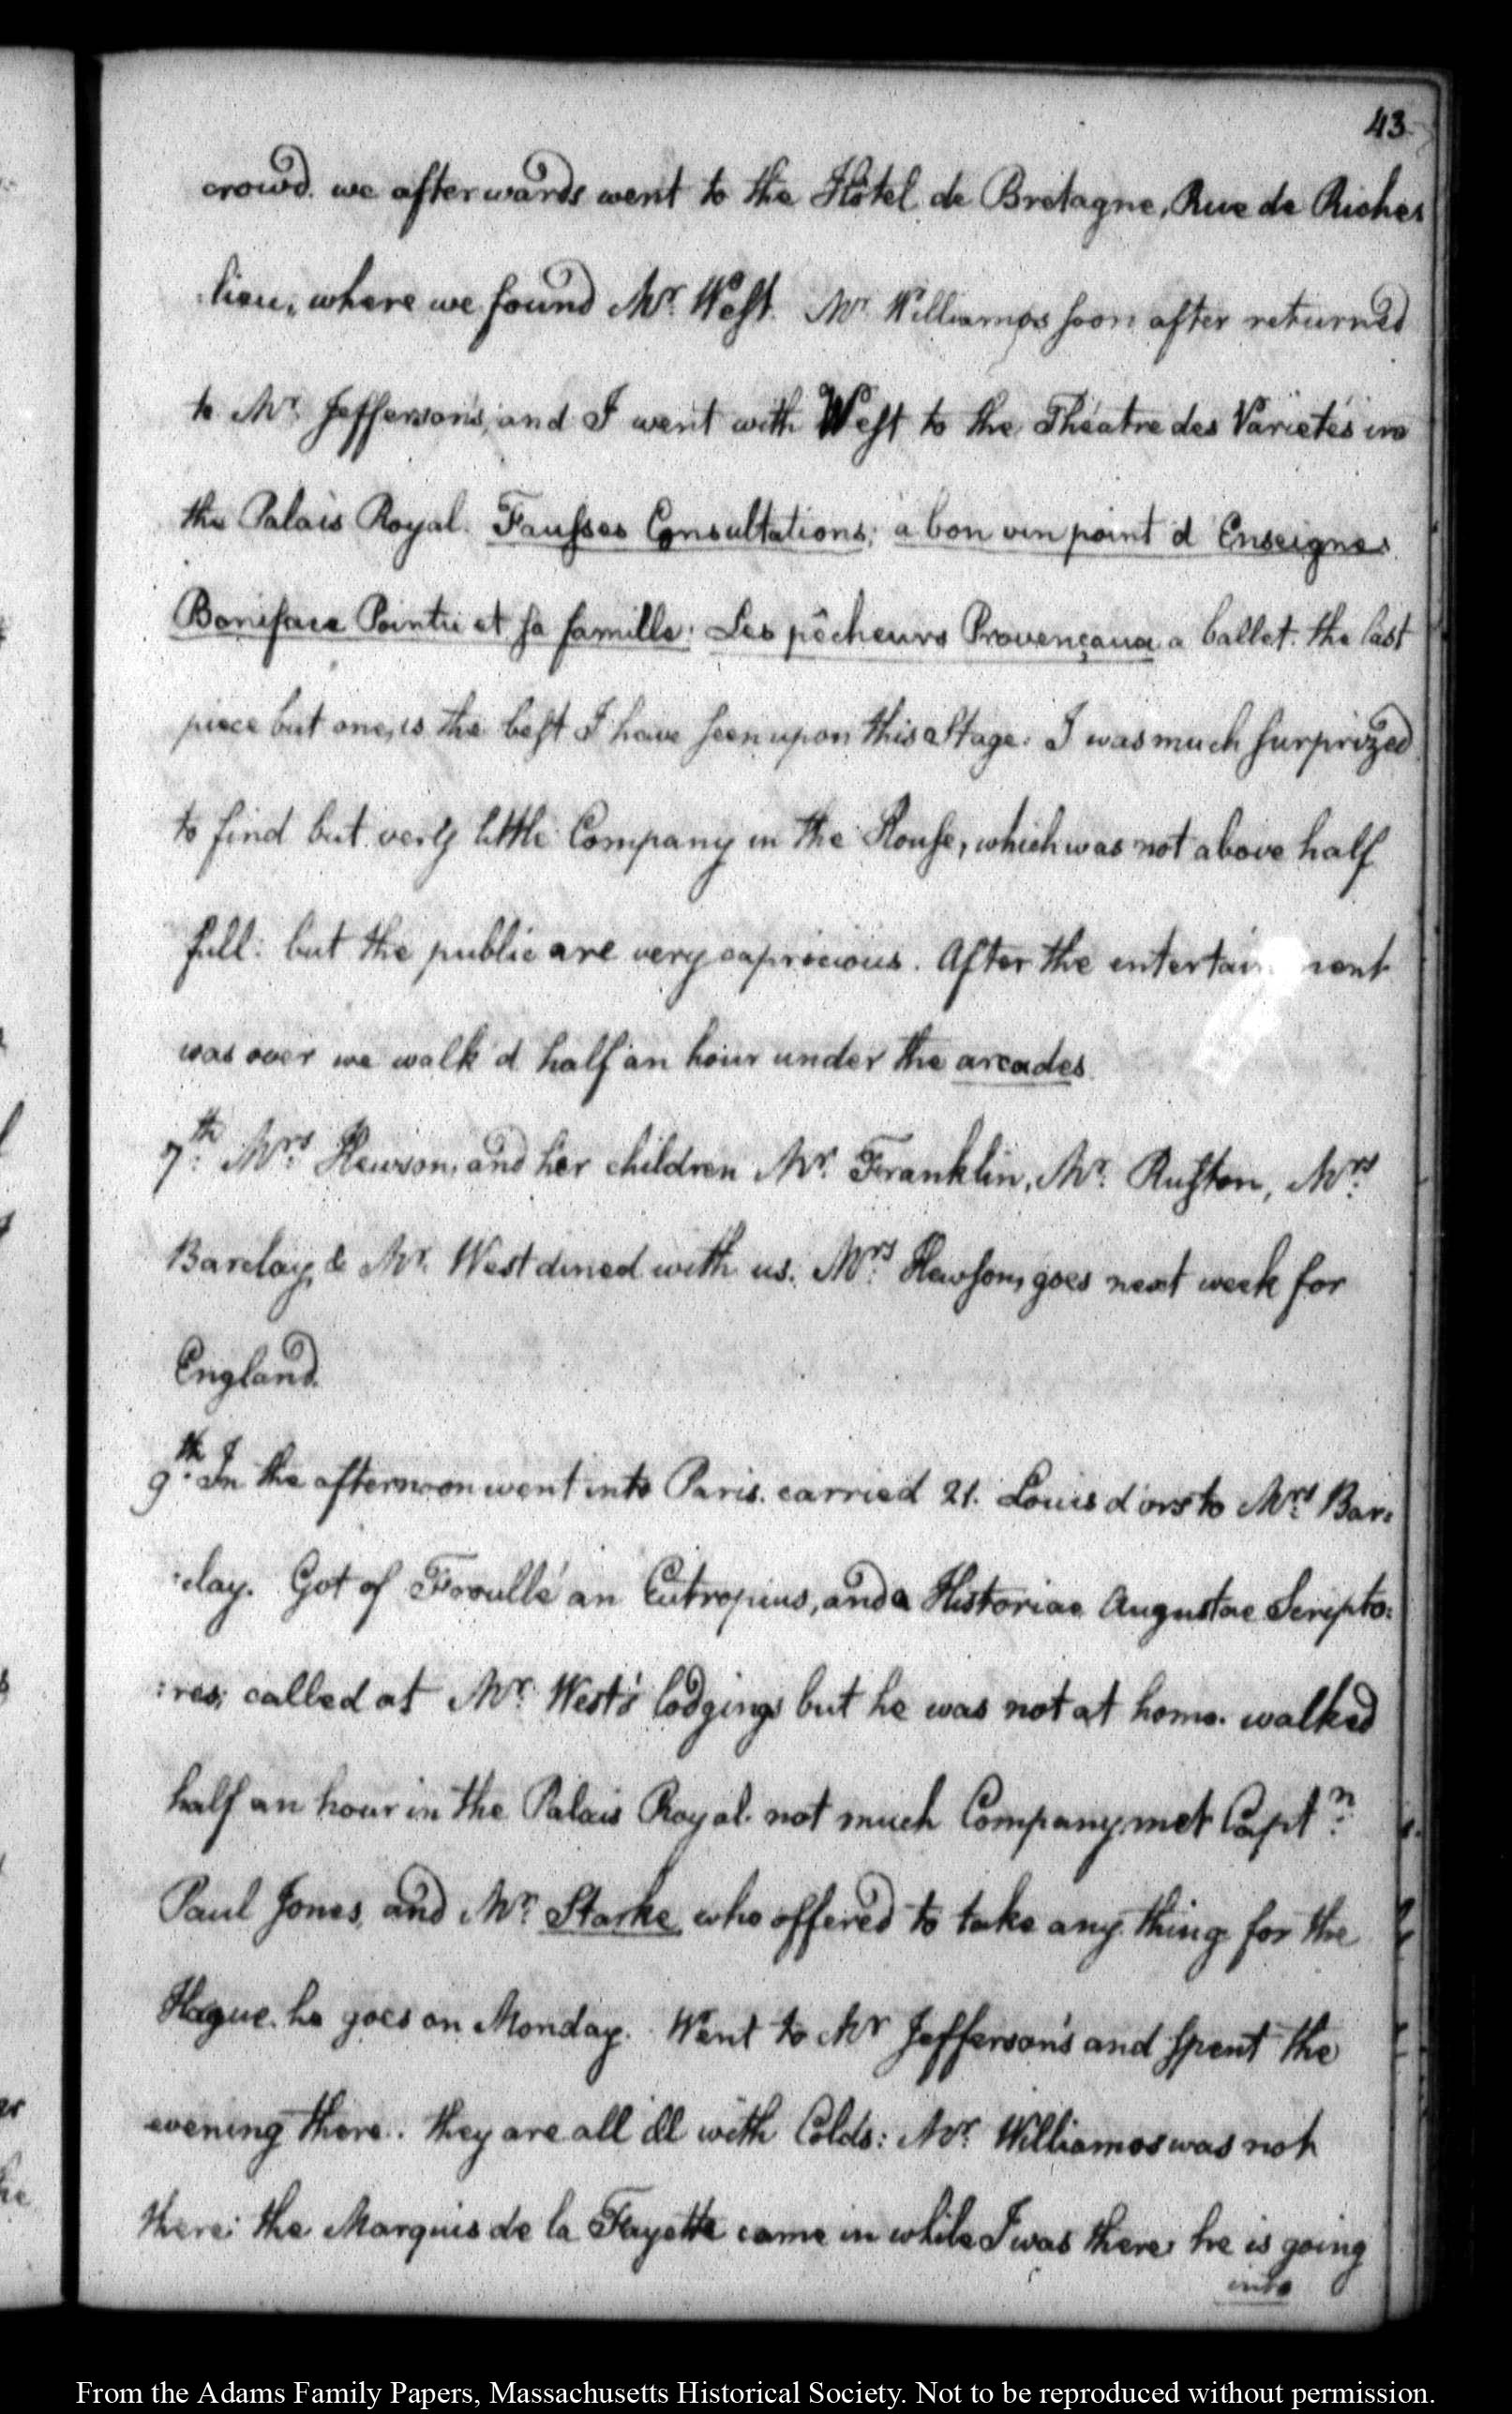 43
crowd. we afterwards went to the Hôtel de Bretagne, Rue de Riche=
:lieu, where we found Mr. West. Mr. Williamos soon after returned
to Mr. Jefferson's, and I went with West to the Théatre des Varietés in
the Palais Royal. Fausses Consultations; a bon vin point d'Enseigne;
Boniface Pointu et sa famille: Les pêcheurs Provençaux a ballet. the last
piece but one, is the best I have seen upon this Stage: I was much surprized
to find but very little Company in the House, which was not above half
full: but the public are very capricious. After the entertainment
was over we walk'd half an hour under the arcades.
7th. Mrs. Hewson, and her children Mr. Franklin, Mr. Ruston, Mrs.
Barclay, & Mr. West dined with us. Mrs. Hewson, goes next week for
England.
9th. In the afternoon went into Paris. carried 21. Louis d'ors to Mrs. Bar=
:clay. Got of Froullé an Eutropius, and a Historiae Augustae Scripto=
:res; called at Mr. West's lodgings but he was not at home. walked
half an hour in the Palais Royal. not much Company. met Captn.
Paul Jones, and Mr. Starke who offered to take any thing for the
Hague. he goes on Monday. Went to Mr Jefferson's and spent the
evening there. they are all ill with Colds: Mr. Williamos was not
there: the Marquis de la Fayette came in while I was there: he is going
into
From the Adams Family Papers, Massachusetts Historical Society. Not to be reproduced without permission.